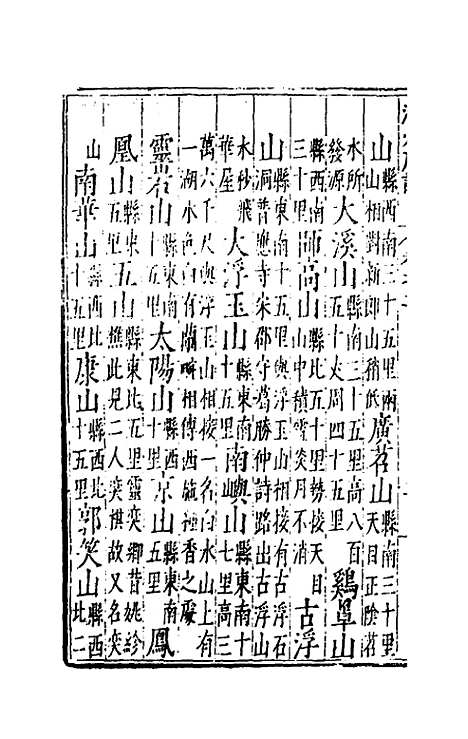 山縣西南三十五里兩山相對新郎山稍低廣苕山縣南三十里天目正陰苕
水所發源大溪山縣南三十五里高八百五十丈周四十五里鷄山
縣西南三十里師高山縣北五十里勢接天目山中積雪炎月不消古浮
山縣東南十五里與浮玉山相接有古浮石山洞普應寺宋郡守葛勝仲詩路出古浮山
水秒飛華屋大浮玉山縣東南十五里南嶼山縣東南十七里高三
萬六千尺與浮玉山相接一名白水山上有一湖水色白有蘭相傳西施種香之處
靈岩山縣東南十五里太陽山縣西十里京山縣東南五里鳳
凰山縣東五里五山縣東北五里靈奕鄉昔姚紾樵此見二人奕棋故又名奕
山南華山縣西北十五里康山縣西北十五里郭笑山縣西北二